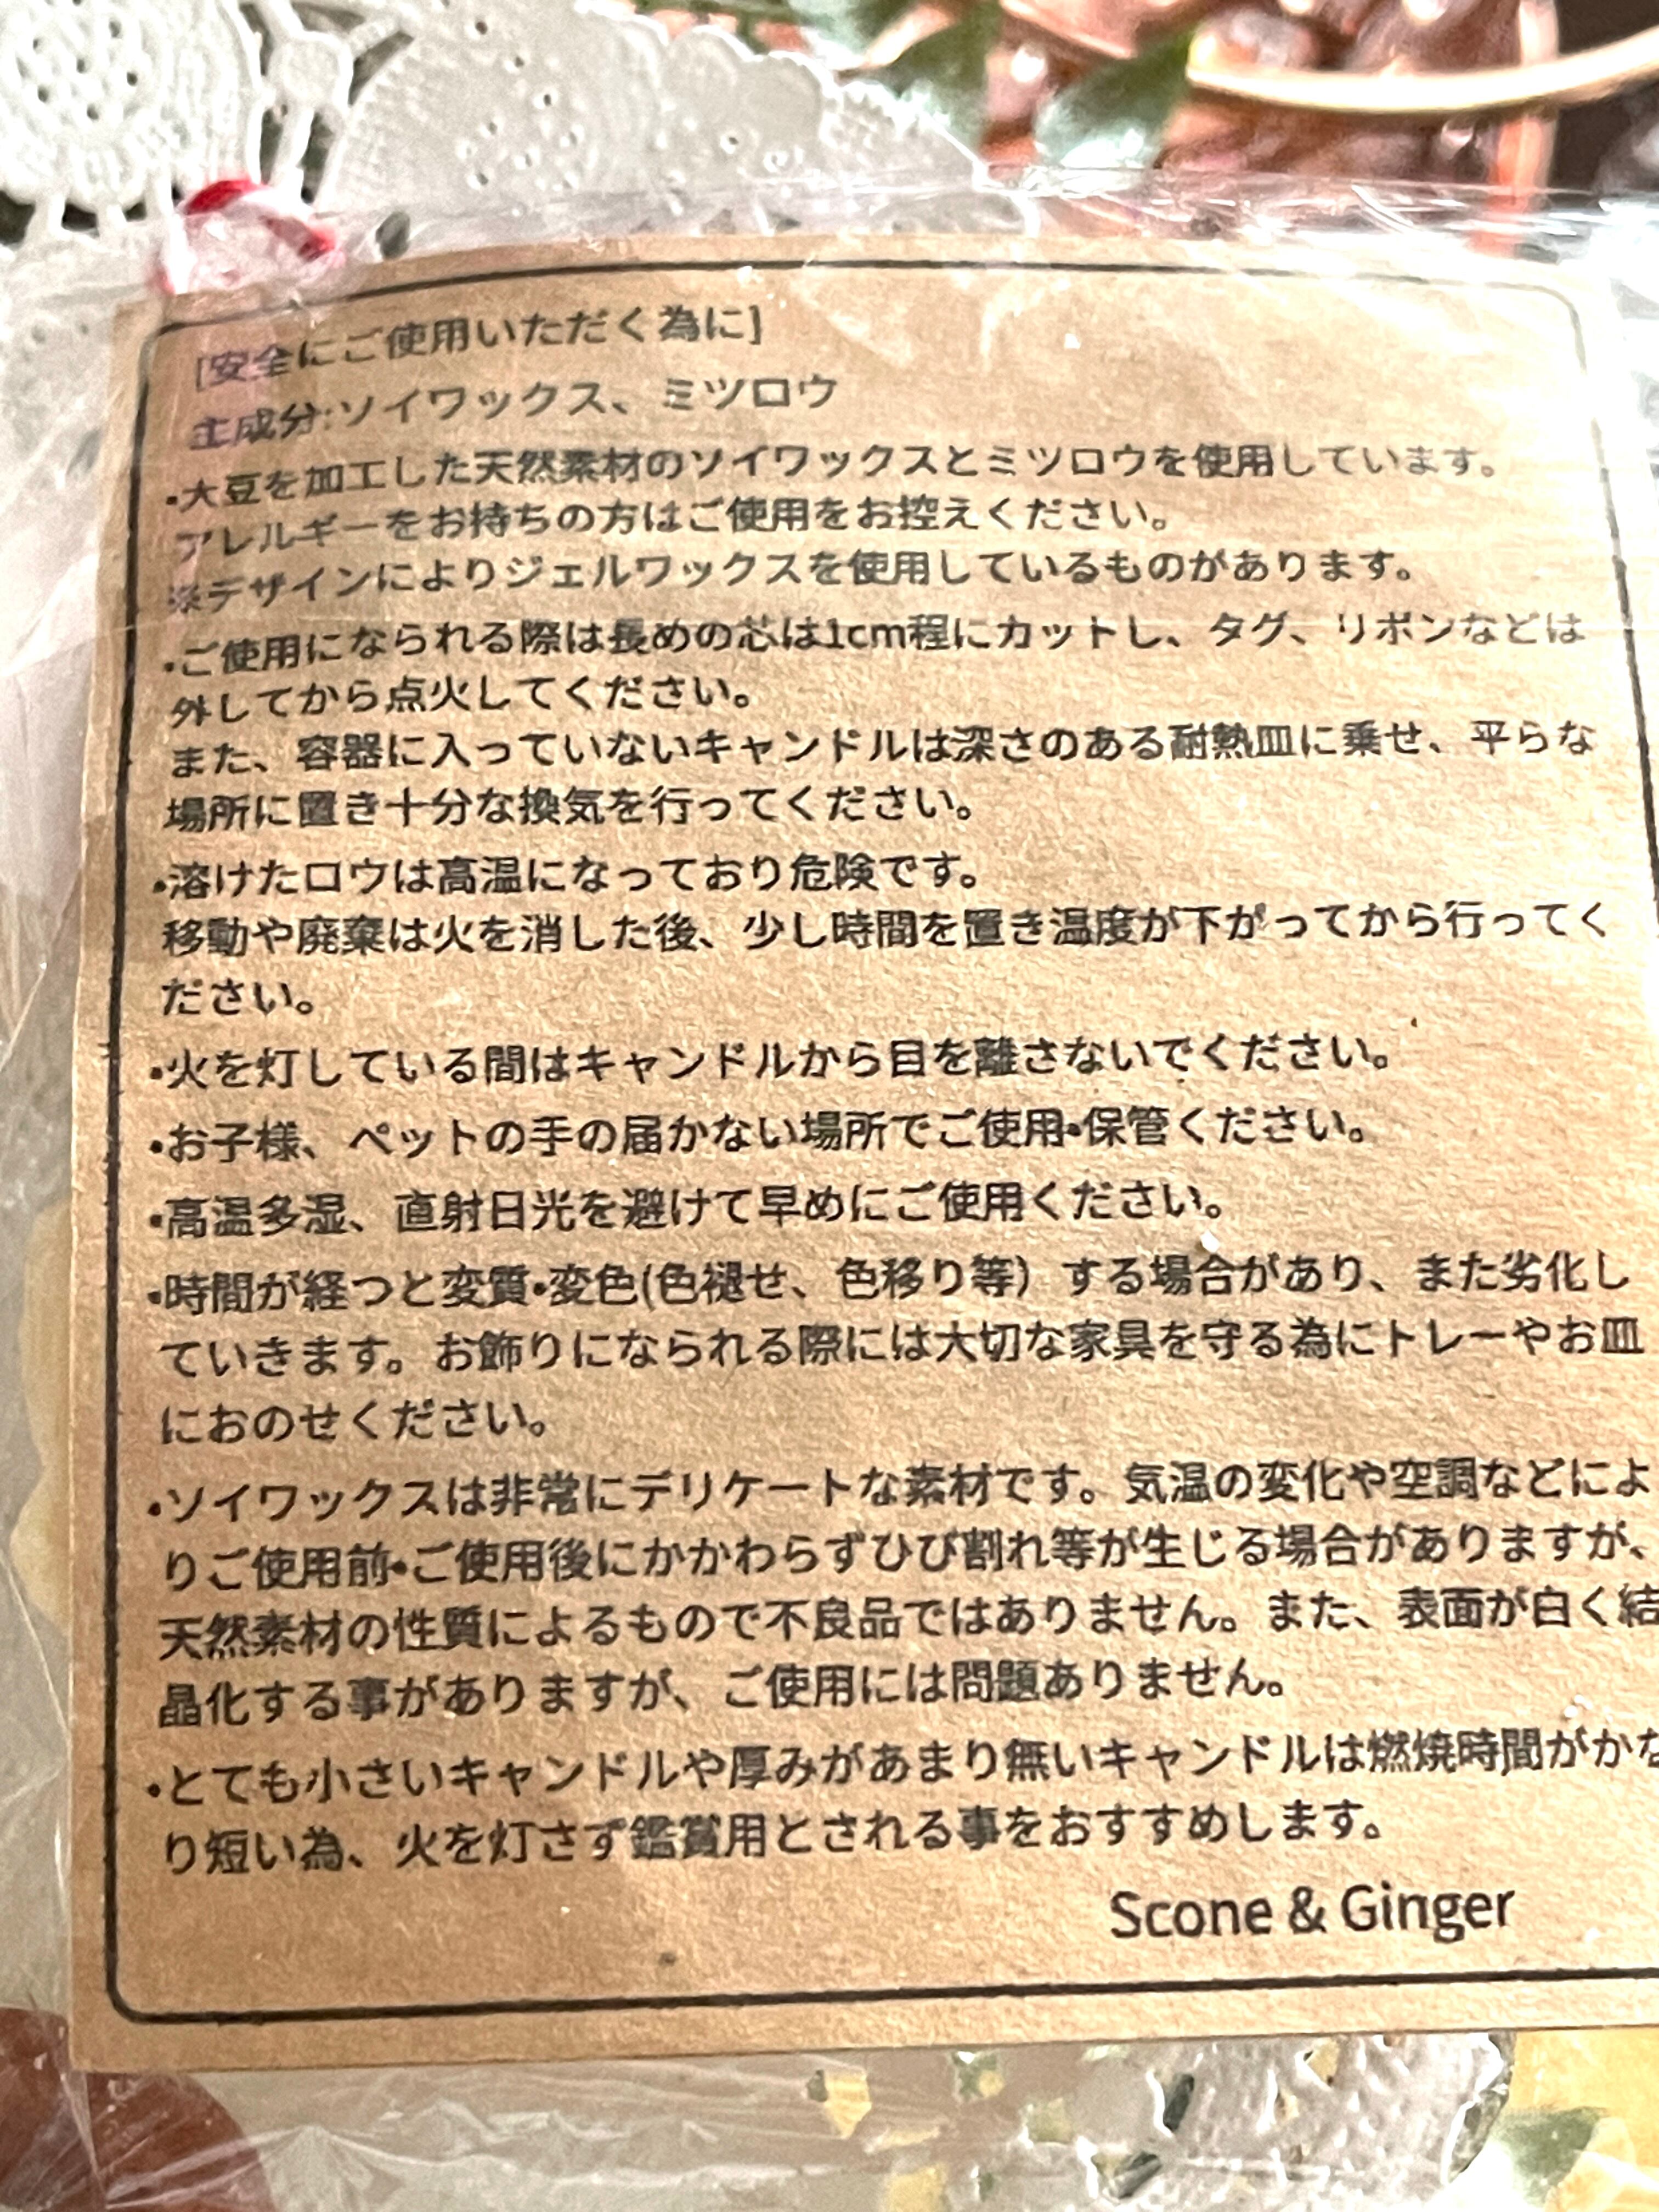 [安全にご使用いただく為に]
主成分:ソイワックス、ミツロウ
•大豆を加工した天然素材のソイワックスとミツロウを使用しています。
アレルギーをお持ちの方はご使用をお控えください。
※デザインによりジェルワックスを使用しているものがあります。
•ご使用になられる際は長めの芯は1cm程にカットし、タグ、リボンなどは
外してから点火してください。
また、容器に入っていないキャンドルは深さのある耐熱皿に乗せ、平らな
場所に置き十分な換気を行ってください。
•溶けたロウは高温になっており危険です。
移動や廃棄は火を消した後、少し時間を置き温度が下がってから行ってく
ださい。
•火を灯している間はキャンドルから目を離さないでください。
•お子様、ペットの手の届かない場所でご使用•保管ください。
•高温多湿、直射日光を避けて早めにご使用ください。
•時間が経つと変質•変色(色褪せ、色移り等）する場合があり、また劣化し
ていきます。お飾りになられる際には大切な家具を守る為にトレーやお皿
におのせください。
•ソイワックスは非常にデリケートな素材です。気温の変化や空調などによ
りご使用前•ご使用後にかかわらずひび割れ等が生じる場合がありますが、
天然素材の性質によるもので不良品ではありません。また、表面が白く結
晶化する事がありますが、ご使用には問題ありません。
•とても小さいキャンドルや厚みがあまり無いキャンドルは燃焼時間がかな
り短い為、火を灯さず鑑賞用とされる事をおすすめします。
Scone & Ginger